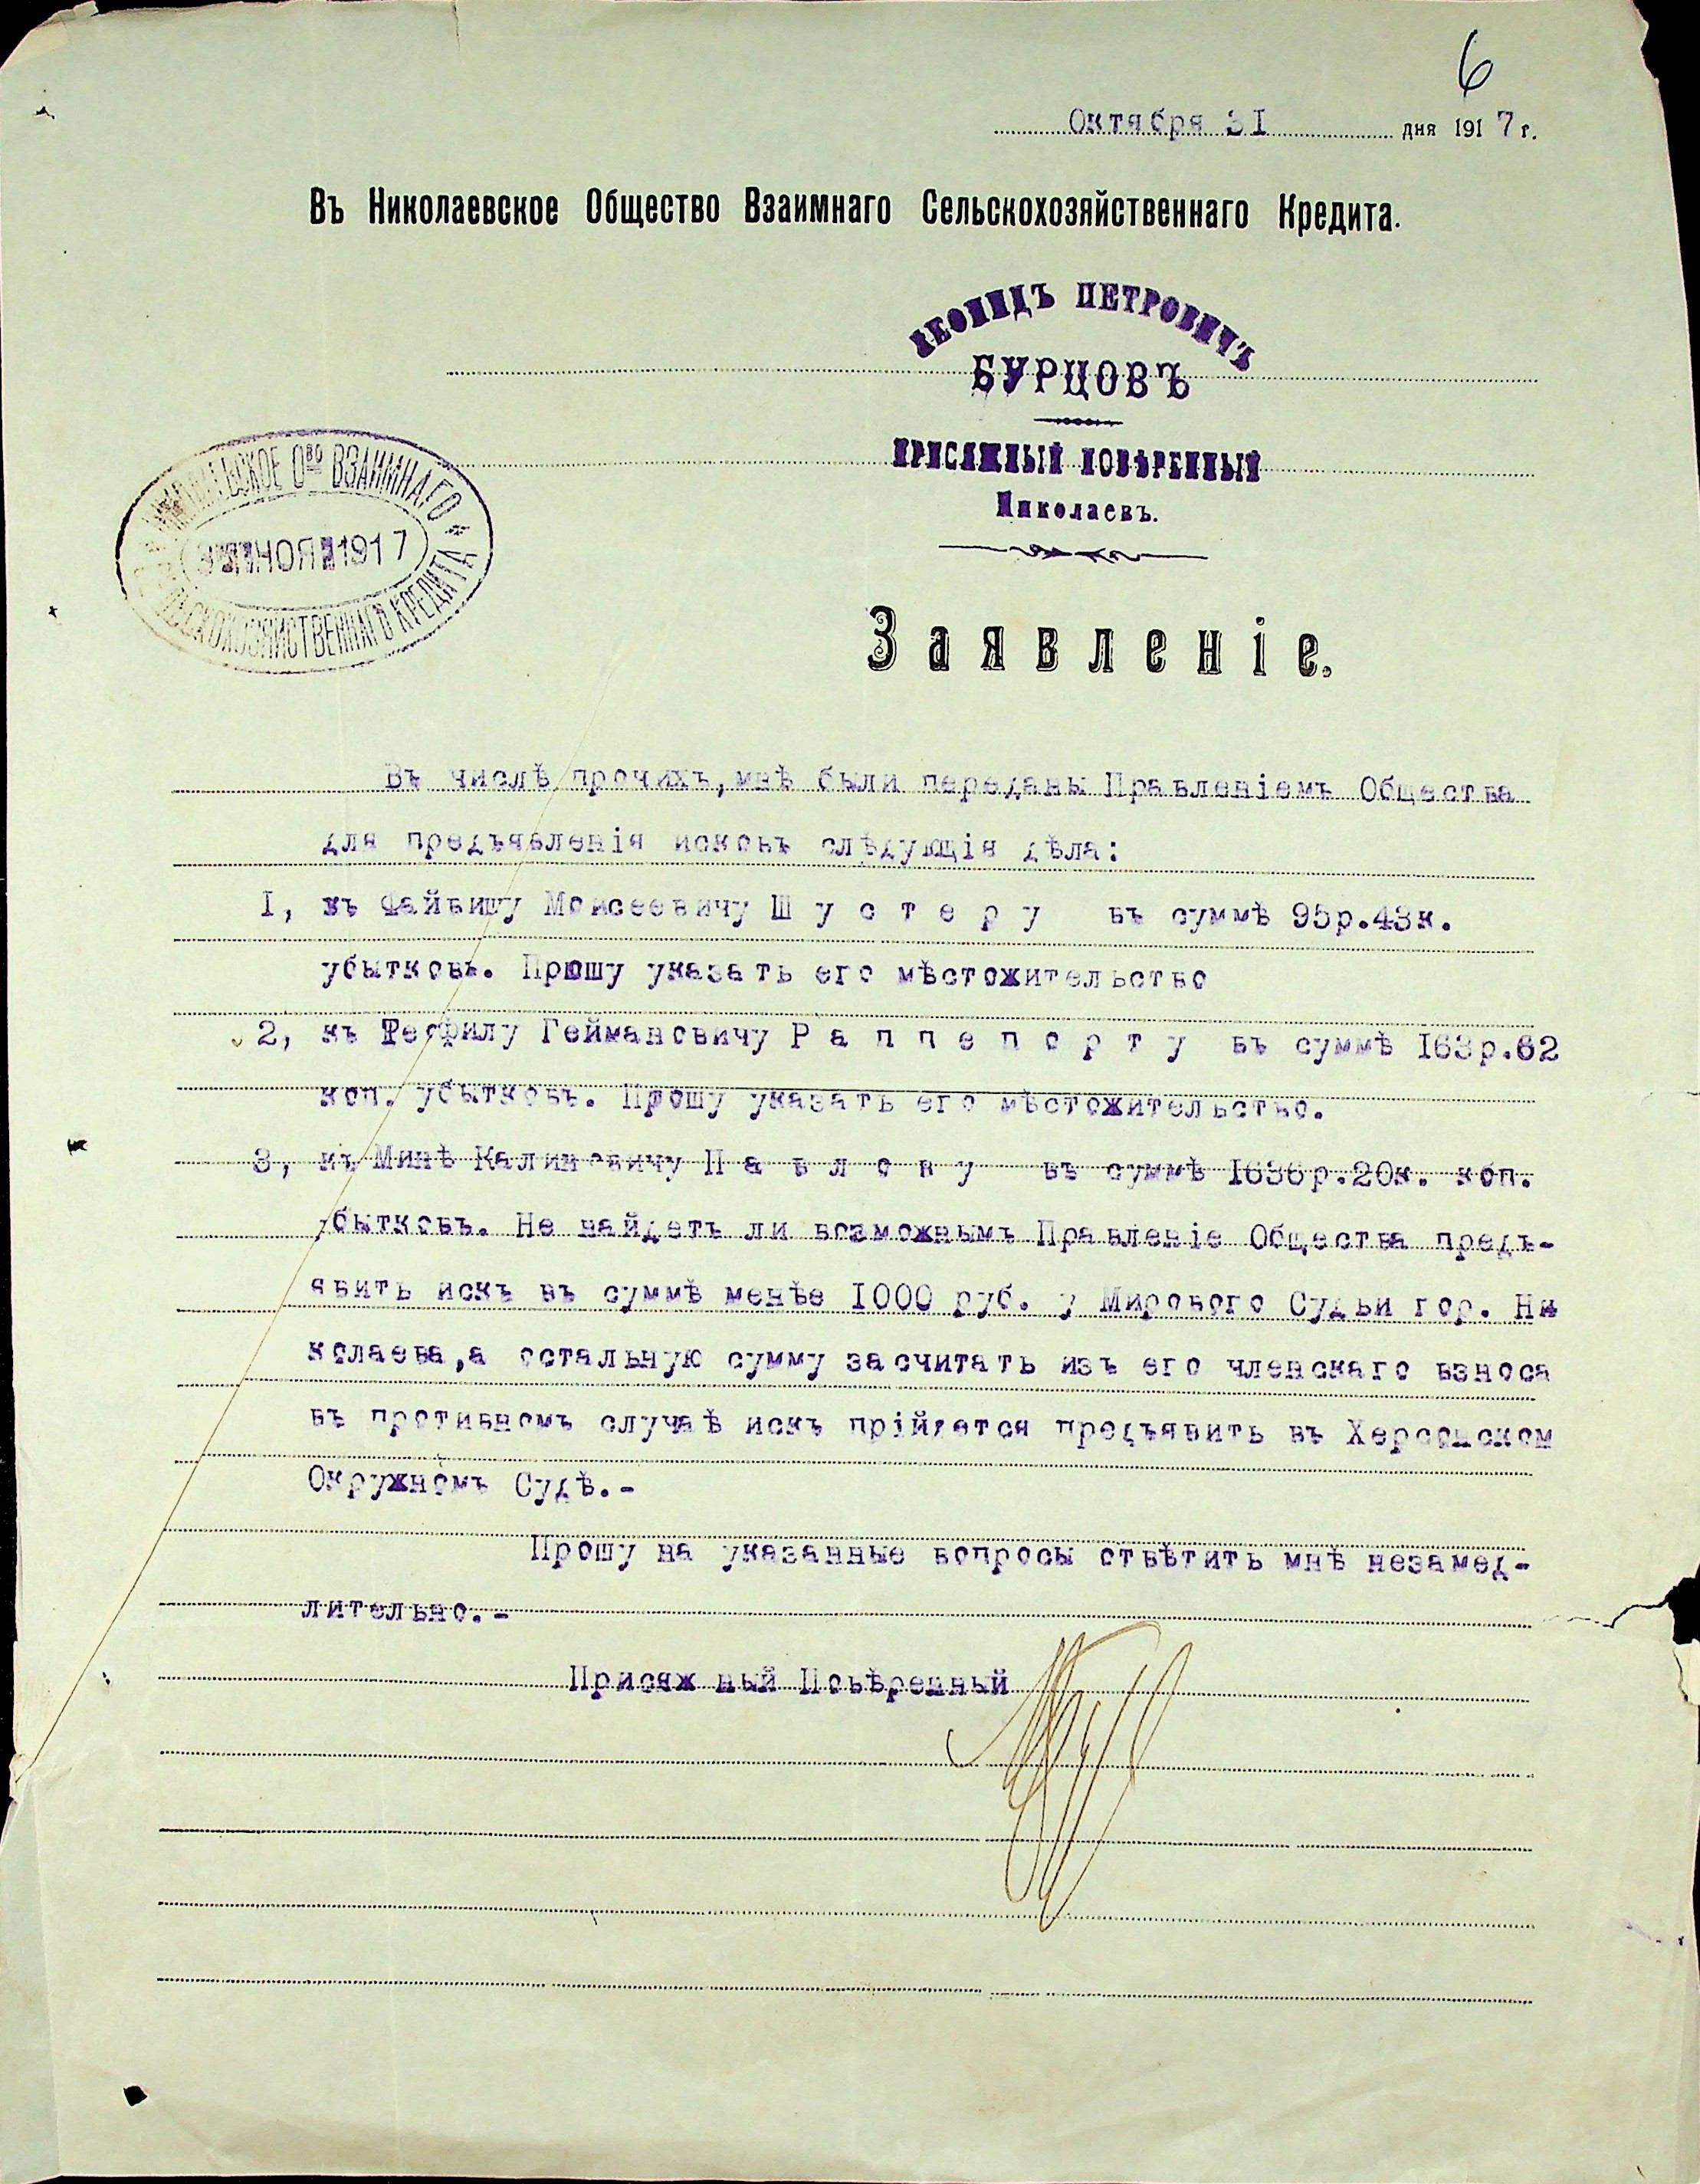 6
Октября 31 дня 1917 г.
Въ Николаевское Общество Взаимнаго Сельскохозяйственнаго Кредита.
ЛЕОНИДЪ ПЕТРОВИЧЪ
БУРЦОВЪ
ПРИСЯЖНЫЙ ПОВѢРЕННЫЙ
Николаевъ.
НИКОЛАЕВСКОЕ О-ВО ВЗАИМНАГО
НОЯ 1917
СЕЛЬСКОХОЗЯЙСТВЕННАГО КРЕДИТА
Заявленіе.
Въ числѣ прочихъ, мнѣ были переданы Правленіемъ Общества
для предъявленія исковъ слѣдующія дѣла:
I, къ Файвишу Моисеевичу Ш у с т е р у въ суммѣ 95р.43к.
убытковъ. Прошу указать его мѣстожительство
2, къ Теофилу Геймановичу Р а п п е п о р т у въ суммѣ I63р.62
коп. убытковъ. Прошу указать его мѣстожительство.
3, къ Минѣ Калиновичу П а в л о в у въ суммѣ I636р.20к. коп.
убытковъ. Не найдетъ ли возможнымъ Правленіе Общества предъ-
явить искъ въ суммѣ менѣе I000 руб. у Мирового Судьи гор. Ни
колаева,а остальную сумму засчитать изъ его членскаго взноса
въ противномъ случаѣ искъ прійдется предъявить въ Херсонском
Окружномъ Судѣ.-
Прошу на указанные вопросы отвѣтить мнѣ незамед-
лительно.-
Присяж ный Повѣренный